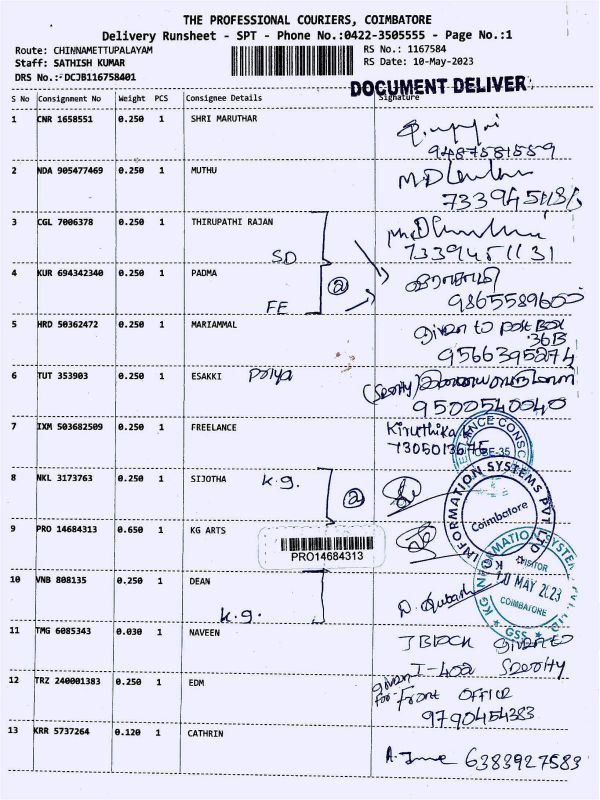 THE PROFESSIONAL COURIERS, COIMBATORE
Delivery Runsheet - SPT - Phone No.:0422-3505555 - Page No.:1
Route: CHINNAMETTUPALAYAM
RS No.: 1167584
Staff: SATHISH KUMAR
RS Date: 10-May-2023
DRS No.:-DCJB116758401
DOCUMENT DELIVER
S No Consignment No Weight PCS Consignee Details Signature
1 CNR 1658551 0.250 1 SHRI MARUTHAR
9487581559
2 NDA 905477469 0.250 1 MUTHU
3 CGL 7006378 0.250 1 THIRUPATHI RAJAN
SD
7339451131
4 KUR 694342340 0.250 1 PADMA
@
FE
9865589600
5 HRD 50362472 0.250 1 MARIAMMAL
Given to Post Box
36B
9566395274
6 TUT 353903 0.250 1 ESAKKI Priya
9500540040
7 IXM 503682509 0.250 1 FREELANCE
Kiruthika
7305013675
8 NKL 3173763 0.250 1 SIJOTHA K.G.
@
INFORMATION SYSTEMS PVT LTD
Coimbatore
9 PRO 14684313 0.650 1 KG ARTS
PRO14684313
10 VNB 808135 0.250 1 DEAN
K.G.
KG INFORMATION SYSTEMS PVT. LTD.
VISITOR
10 MAY 2023
COIMBATORE
★ GSS ★
11 TMG 6085343 0.030 1 NAVEEN
J Block Given to
I-402 Seority
12 TRZ 240001383 0.250 1 EDM
Given
For Front OFFICE
9790454383
13 KRR 5737264 0.120 1 CATHRIN
A. June 6383927583